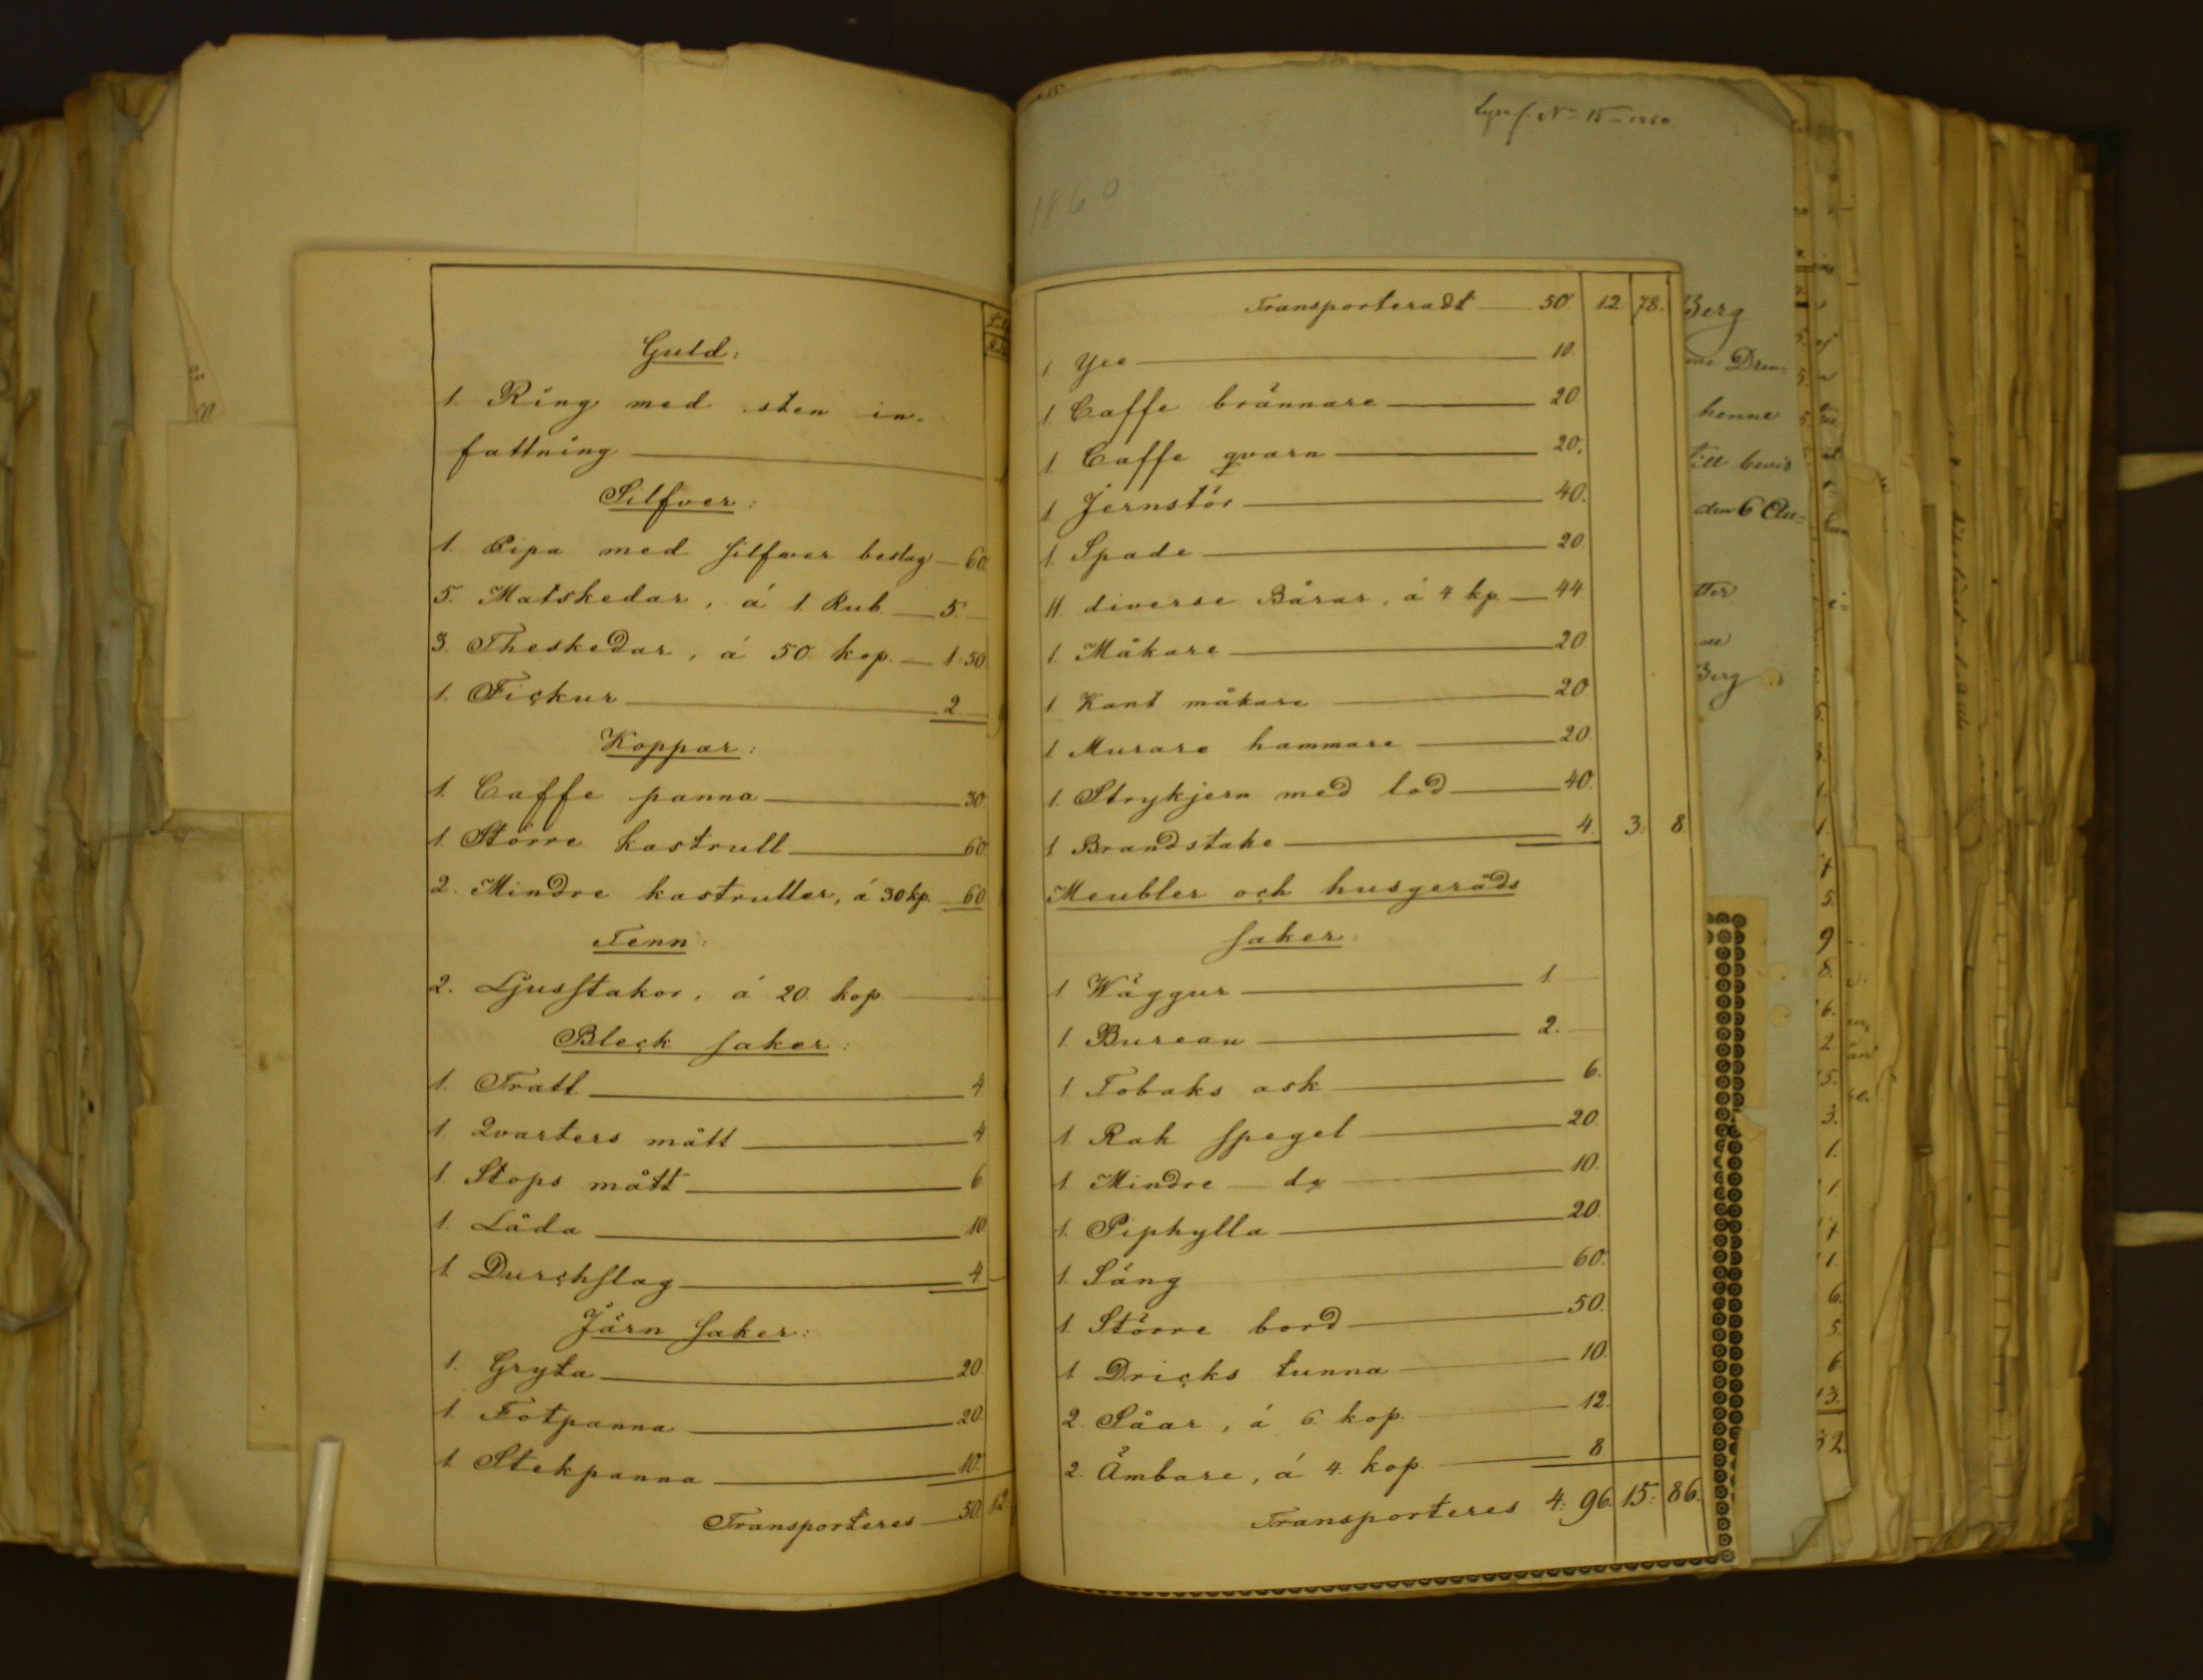 Guld:
1. Ring med sten in-
fattning
Silfver:
1. Pipa med silfver beslag 60.
5. Matskedar, á 1 Rub. 5.
3. Theskedar, á 50 kop. 1:50
1. Fickur 2.
Koppar:
1. Caffe panna 30
1. Större kastrull 60
2. Mindre kastruller, á 30 kp. 60
Tenn:
2. Ljusstakor, á 20. kop.
Bleck saker:
1. Tratt 4
1. Qvarters mått 4
1. Stops mått 6
1. Låda 10
1. Durchslag 4
Järn saker:
1. Gryta 20
1. Fotpanna 20
1. Stekpanna 10.
Transporteres 50. 12.
No 15 1860
1860
Transporteradt 50. 12. 78.
1 Yxe 10.
1. Caffe brännare 20
1. Caffe qvarn 20.
1 Jernstör 40.
1. Spade 20.
11. diverse Bårar, á 4 kp. 44.
1. Måkare 20
1 Kant måkare 20.
1 Murare hammare 20.
1. Strykjern med lod 40.
1 Brandstake 4. 3: 8
Meubler och husgeråds
saker
1 Wäggur 1.
1. Bureau 2.
1 Tobaks ask 6.
1 Rak spegel 20.
1 Mindre do 10.
1. Piphylla 20.
1. Säng 60.
1. Större bord 50.
1 Dricks tunna 10.
2. Såar, á 6. kop. 12.
2. Ämbare, á 4. kop. 8
Transporteres 4: 96. 15: 86.
Berg
henne
till bevis
den 6
Berg